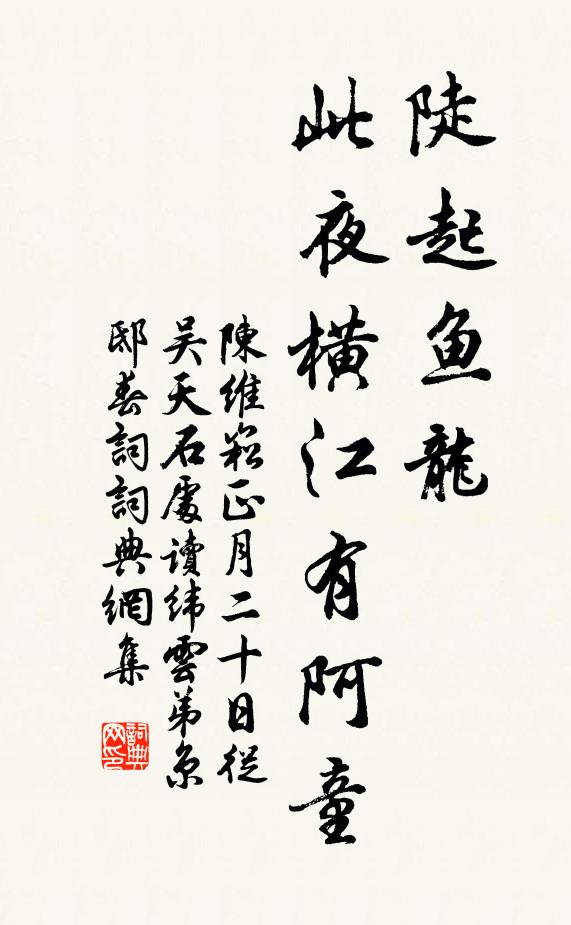 陡起魚龍
此夜橫江有阿童
陳維崧正月二十日從
吳天石處讀緯雲弟京
邸春詞詞典網集
詞典網印